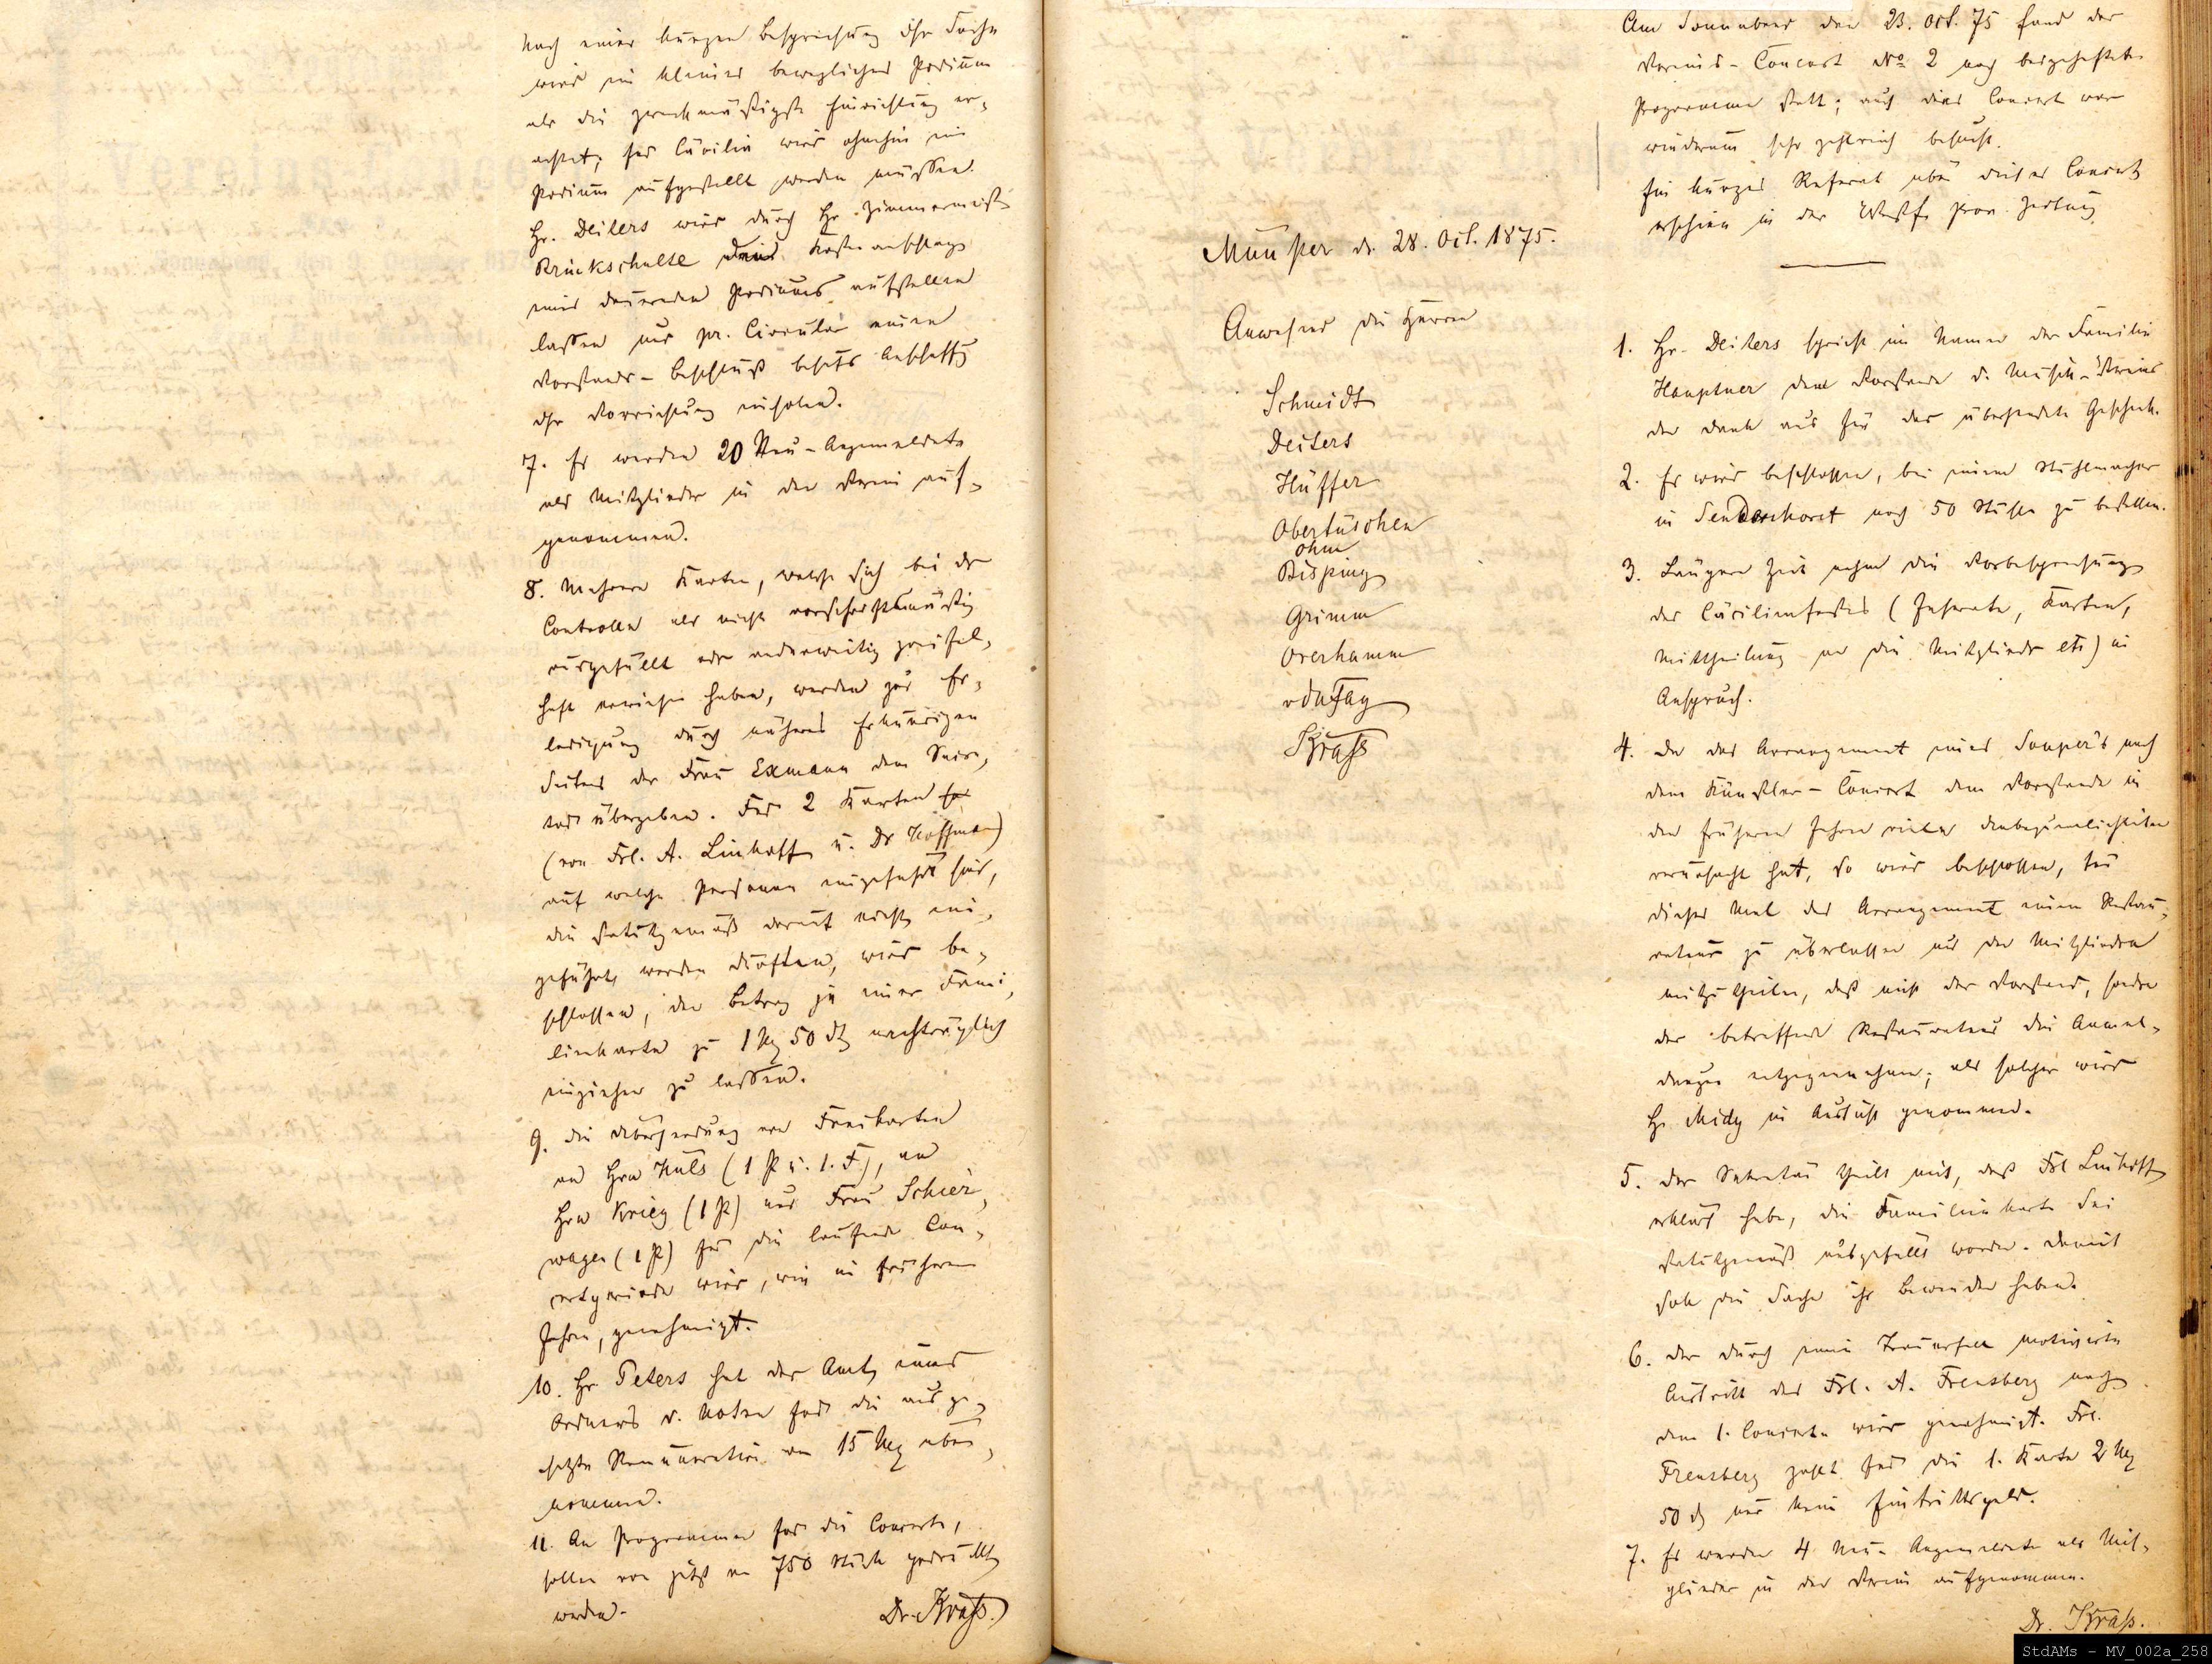 Nach einer kurzen Besprechung dsr Sache
wird ein kleines bewegliches Podium
als die zweckmäßigste Einrichtung er-
achtet; für Cäcilia wird ohnehin ein
Podium aufgestellt werden müssen.
Hr. Deiters wird durch Hr. Zimmermeistr
Brückschulte Kostenanschlag
eines dauernden Podiums aufstellen
lassen und pr. Circular einen
Vorstands-Beschluß behufs Anschaffg
dsr Vorrichtung einholen.
7. Es werden 20 Neu-Angemeldete
als Mitglieder in den Verein auf-
genommen.
8. Mehrere Karten, welche sich bei dr
Controlle als nicht vorschriftsmäßig
ausgefüllt oder anderweitig zweifel-
haft erwiesen haben, werden zur Er-
ledigung durch näheres Erkundigen
Seitens der Frau Exmann dem Secre-
tar übergeben. Für 2 Karten
(von Frl. A. Linhoff u. Dr Hoffmann)
auf welche Personen eingeführt sind,
die statutgemäß darauf nicht ein-
geführt werden durften, wird be-
schlossen, den Betrag zu einer Fami-
lienkarte zu 1 Mk 50 d nachträglich
einziehen zu lassen.
9. Die Übersendung von Freikarten
an Hrn Hüls (1 P u. 1. F), an
Hrn Krieg (1 P) und Frau Schier-
wagen (1 P) für die laufende Con-
certperiode wird, wie in früheren
Jahren, genehmigt.
10. Hr Peters hat das Amt eines
Ordners d. Noten für die ausge-
setzte Remuneration von 15 Mk über-
nommen.
11. An Programmen für die Concerte,
sollen von jetzt an 750 Stück gedruckt
werden.
Dr. Kraß.
Am Sonnabend den 23. Oct. 75 fand das
Vereins-Concert No 2 nach beigeheftetem
Programm statt; auch dies Concert war
wiederum sehr zahlreich besucht.
Ein kurzes Referat über dieses Concert
erschien in der Westf. Prov. Zeitung
Münster d. 28. Oct. 1875.
Anwesend die Herren
Schmidt
Deiters
Hüffer
Obertüschen
Ohm
Bisping
Grimm
Overhamm
Kraß
1. Hr. Deiters spricht im Namen der Familie
Hauptner dem Vorstande d. Musik-Vereins
den Dank aus für das übersendete Geschenk.
2. Es wird beschlossen, bei einem Stuhlmacher
in Sendenhorst noch 50 Stühle zu bestellen.
3. Längere Zeit nahm die Vorbesprechung
des Cäcilienfestes (Inserate, Karten,
Mittheilung an die Mitglieder etc) in
Anspruch.
4. Da das Arrangement eines Souper's nach
dem Künstler-Concert dem Vorstande in
den früheren Jahren viele Unbequemlichkeiten
verursacht hat, so wird beschlossen, für
dieses Mal das Arrangement einem Restau-
rateur zu überlassen und den Mitgliedern
mitzutheilen, daß nicht der Vorstand, sondern
der betreffende Restaurateur die Anmel-
dungen entgegennehme; als solcher wird
Hr. Midy in Aussicht genommen.
5. Der Sekretär theilt mit, daß Frl Linhoff
erklärt habe, die Familienkarte sei
statutgemäß ausgefüllt worden. Damit
soll die Sache ihr Bewenden haben.
6. Der durch einen Trauerfall motivirte
Austritt des Frl. A. Frensberg nach
dem 1. Concerte wird genehmigt. Frl.
Frensberg zahlt für die 1. Karte 2 Mk
50 d und kein Eintrittsgeld.
7. Es werden 4 Neu-Angemeldete als Mit-
glieder in den Verein aufgenommen.
Dr. Kraß.
StdAMs - MV_002a_258